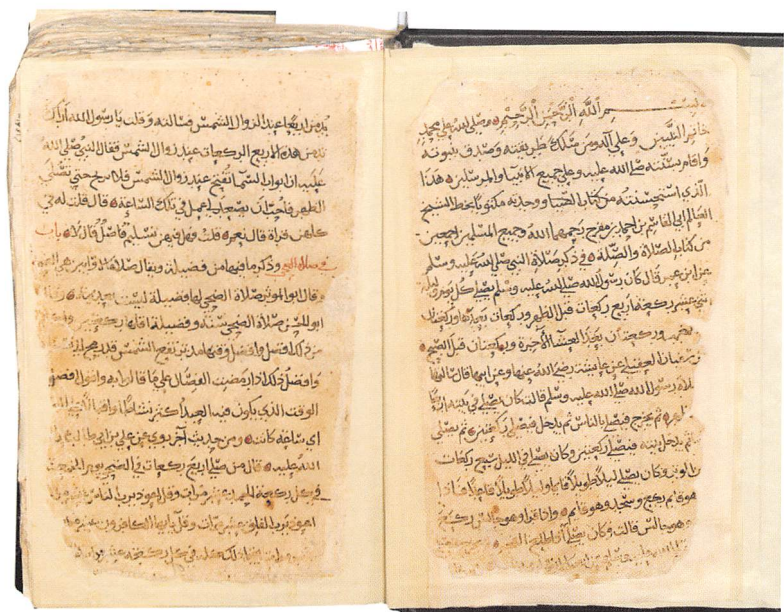 بسم الله الرحمن الرحيم وصلى الله على محمد
خاتم النبيين وعلى آله ومن سلك طريقته وصدق بنبوته
واقام بسنته صلى الله عليه وعلى جميع الانبيا والمرسلين هذا
الذي استحسنته من كتاب الضيا ووجدته مكتوبا بخط الشيخ
العالم ابي القاسم بن احمد بن مفرج رحمهما الله وجميع المسلمين اجمعين
من كتاب الصلاة والصلة في ذكر صلاة النبي صلى الله عليه وسلم
عن ابن عمر قال كان رسول الله صلى الله عليه وسلم يصلي كل يوم وليلة
ثنتي عشر ركعة اربع ركعات قبل الظهر وركعات بعدها وركعتان
وركعتان بعد العشا الآخرة وركعتان قبل الصبح
عن عايشة رضي الله عنها وعن ابيها قال
رسول الله صلى الله عليه وسلم قالت كان يصلي في بيته
ثم يخرج فيصلي بالناس ثم يدخل فيصلي ركعتين ثم يصلي
ثم يدخل بيته فيصلي ركعتين وكان يصلي في الليل سبع ركعات
الوتر وكان يصلي ليلا طويلا قايما وليلا طويلا قاعدا فاذا
هو قايم ركع وسجد وهو قايم واذا قرا وهو جالس ركع
وهو جالس قالت وكان يصلي اذا طلع الفجر
اربعا عند الزوال الشمس فسالته وقلت يا رسول الله اراك
تدمن هذه الاربع الركعات عند زوال الشمس فقال النبي صلى الله
عليه ان ابواب السما تفتح عند زوال الشمس فلا ترتج حتى تصلى
الظهر فاحب ان يصعد لي عمل في تلك الساعة قال قلت له في
كلهن قراة قال نعم قلت فهل فيهن تسليم فاصل قال لا باب
في صلاة الضحى وذكر ما فيها من فضيلة ويقال صلاة الاوابين هي الضحى
وقال ابو المؤثر صلاة الضحى لها فضيلة ليست
ابو الحسن صلاة الضحى سنة وفضيلة اقلها ركعتين
من ذلك افضل وافضل وقتها مذ ترتفع الشمس قدر رمح
وافضل ذلك اذا رمضت الفصال على ما قال
الوقت الذي يكون فيه العبد اكثر نشاطا
اي ساعة كانت ومن حديث آخر روي عن علي بن ابي طالب
الله عليه قال من صلى اربع ركعات في الضحى يوم الجمعة
في كل ركعة الحمد عشر مرات وقل اعوذ برب الناس
اعوذ برب الفلق عشر مرات وقل يا ايها الكافرون عشر
ذلك كله في كل ركعة